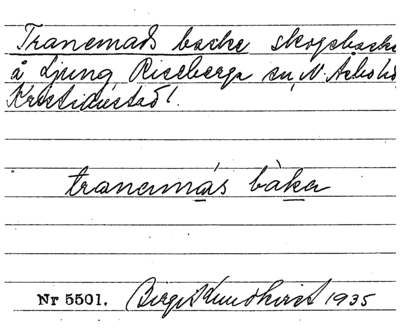 Tranemads backe skogsbacke
å Ljung Riseberga sn, N. Åsbo hd
Kristianstad l.
tranamás bàka
Nr 5501. Birgit Lundkvist 1935